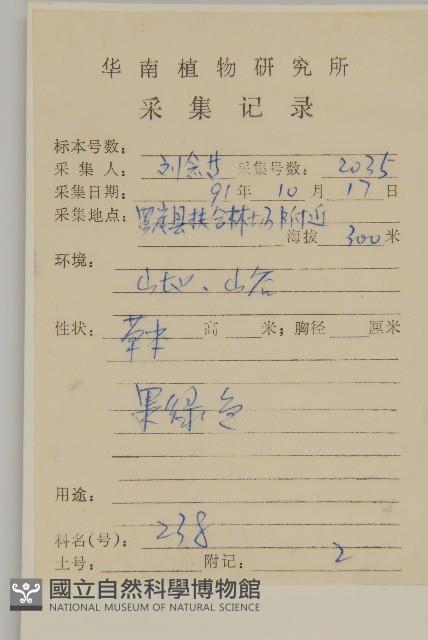 华南植物研究所
采集记录
标本号数:
采集人: 刘念 采集号数: 2035
采集日期: 91年10月17日
采集地点: 罗定县扶合林场附近
海拔 300米
环境:
山地、山谷
性状: 草本 高 米; 胸径 厘米
果绿色
用途:
科名(号): 238
土号: 附记: 2
國立自然科學博物館
NATIONAL MUSEUM OF NATURAL SCIENCE